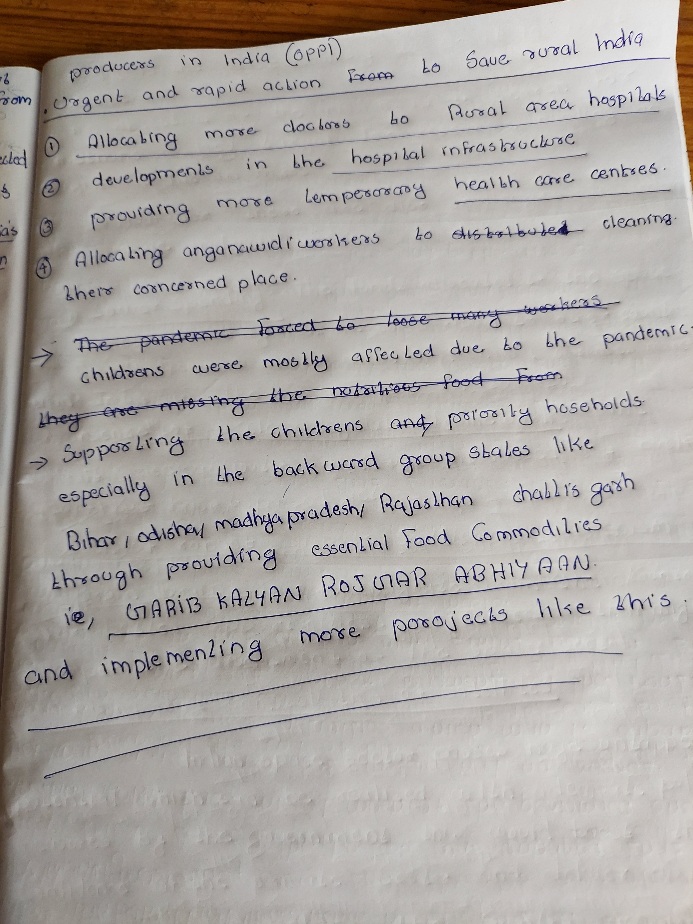 producers in India (OPPI)
Urgent and rapid action ~~From~~ to Save rural India
① Allocating more doctors to Rural area hospitals
② developments in the hospital infrastructure
③ providing more temperoray health care centres.
④ Allocating anganawidi workers to ~~distributed~~ cleaning
there corncerned place.
→ ~~The pandemic forced to loose many workers~~
childrens were mostly affected due to the pandemic.
~~they are missing the nutritious food From~~
→ Supporting the childrens and priority hoseholds
especially in the backward group states like
Bihar, odisha, madhyapradesh, Rajasthan chattisgarh
through providing essential Food Commodities
ie, GARIB KALYAN ROJGAR ABHIYAAN.
and implementing more porojects like this.